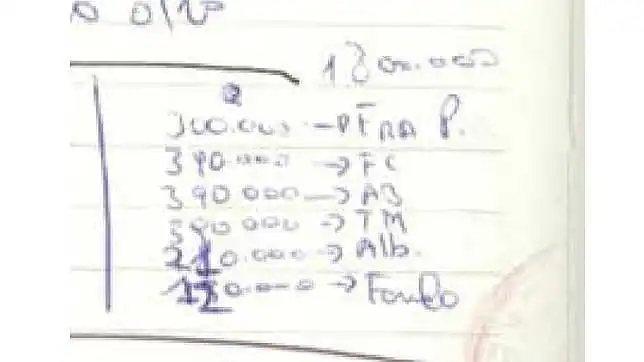 1.800.000
300.000 → FRA P.
390.000 → FC
390.000 → AB
390.000 → TM
210.000 → Alb.
120.000 → Fondo